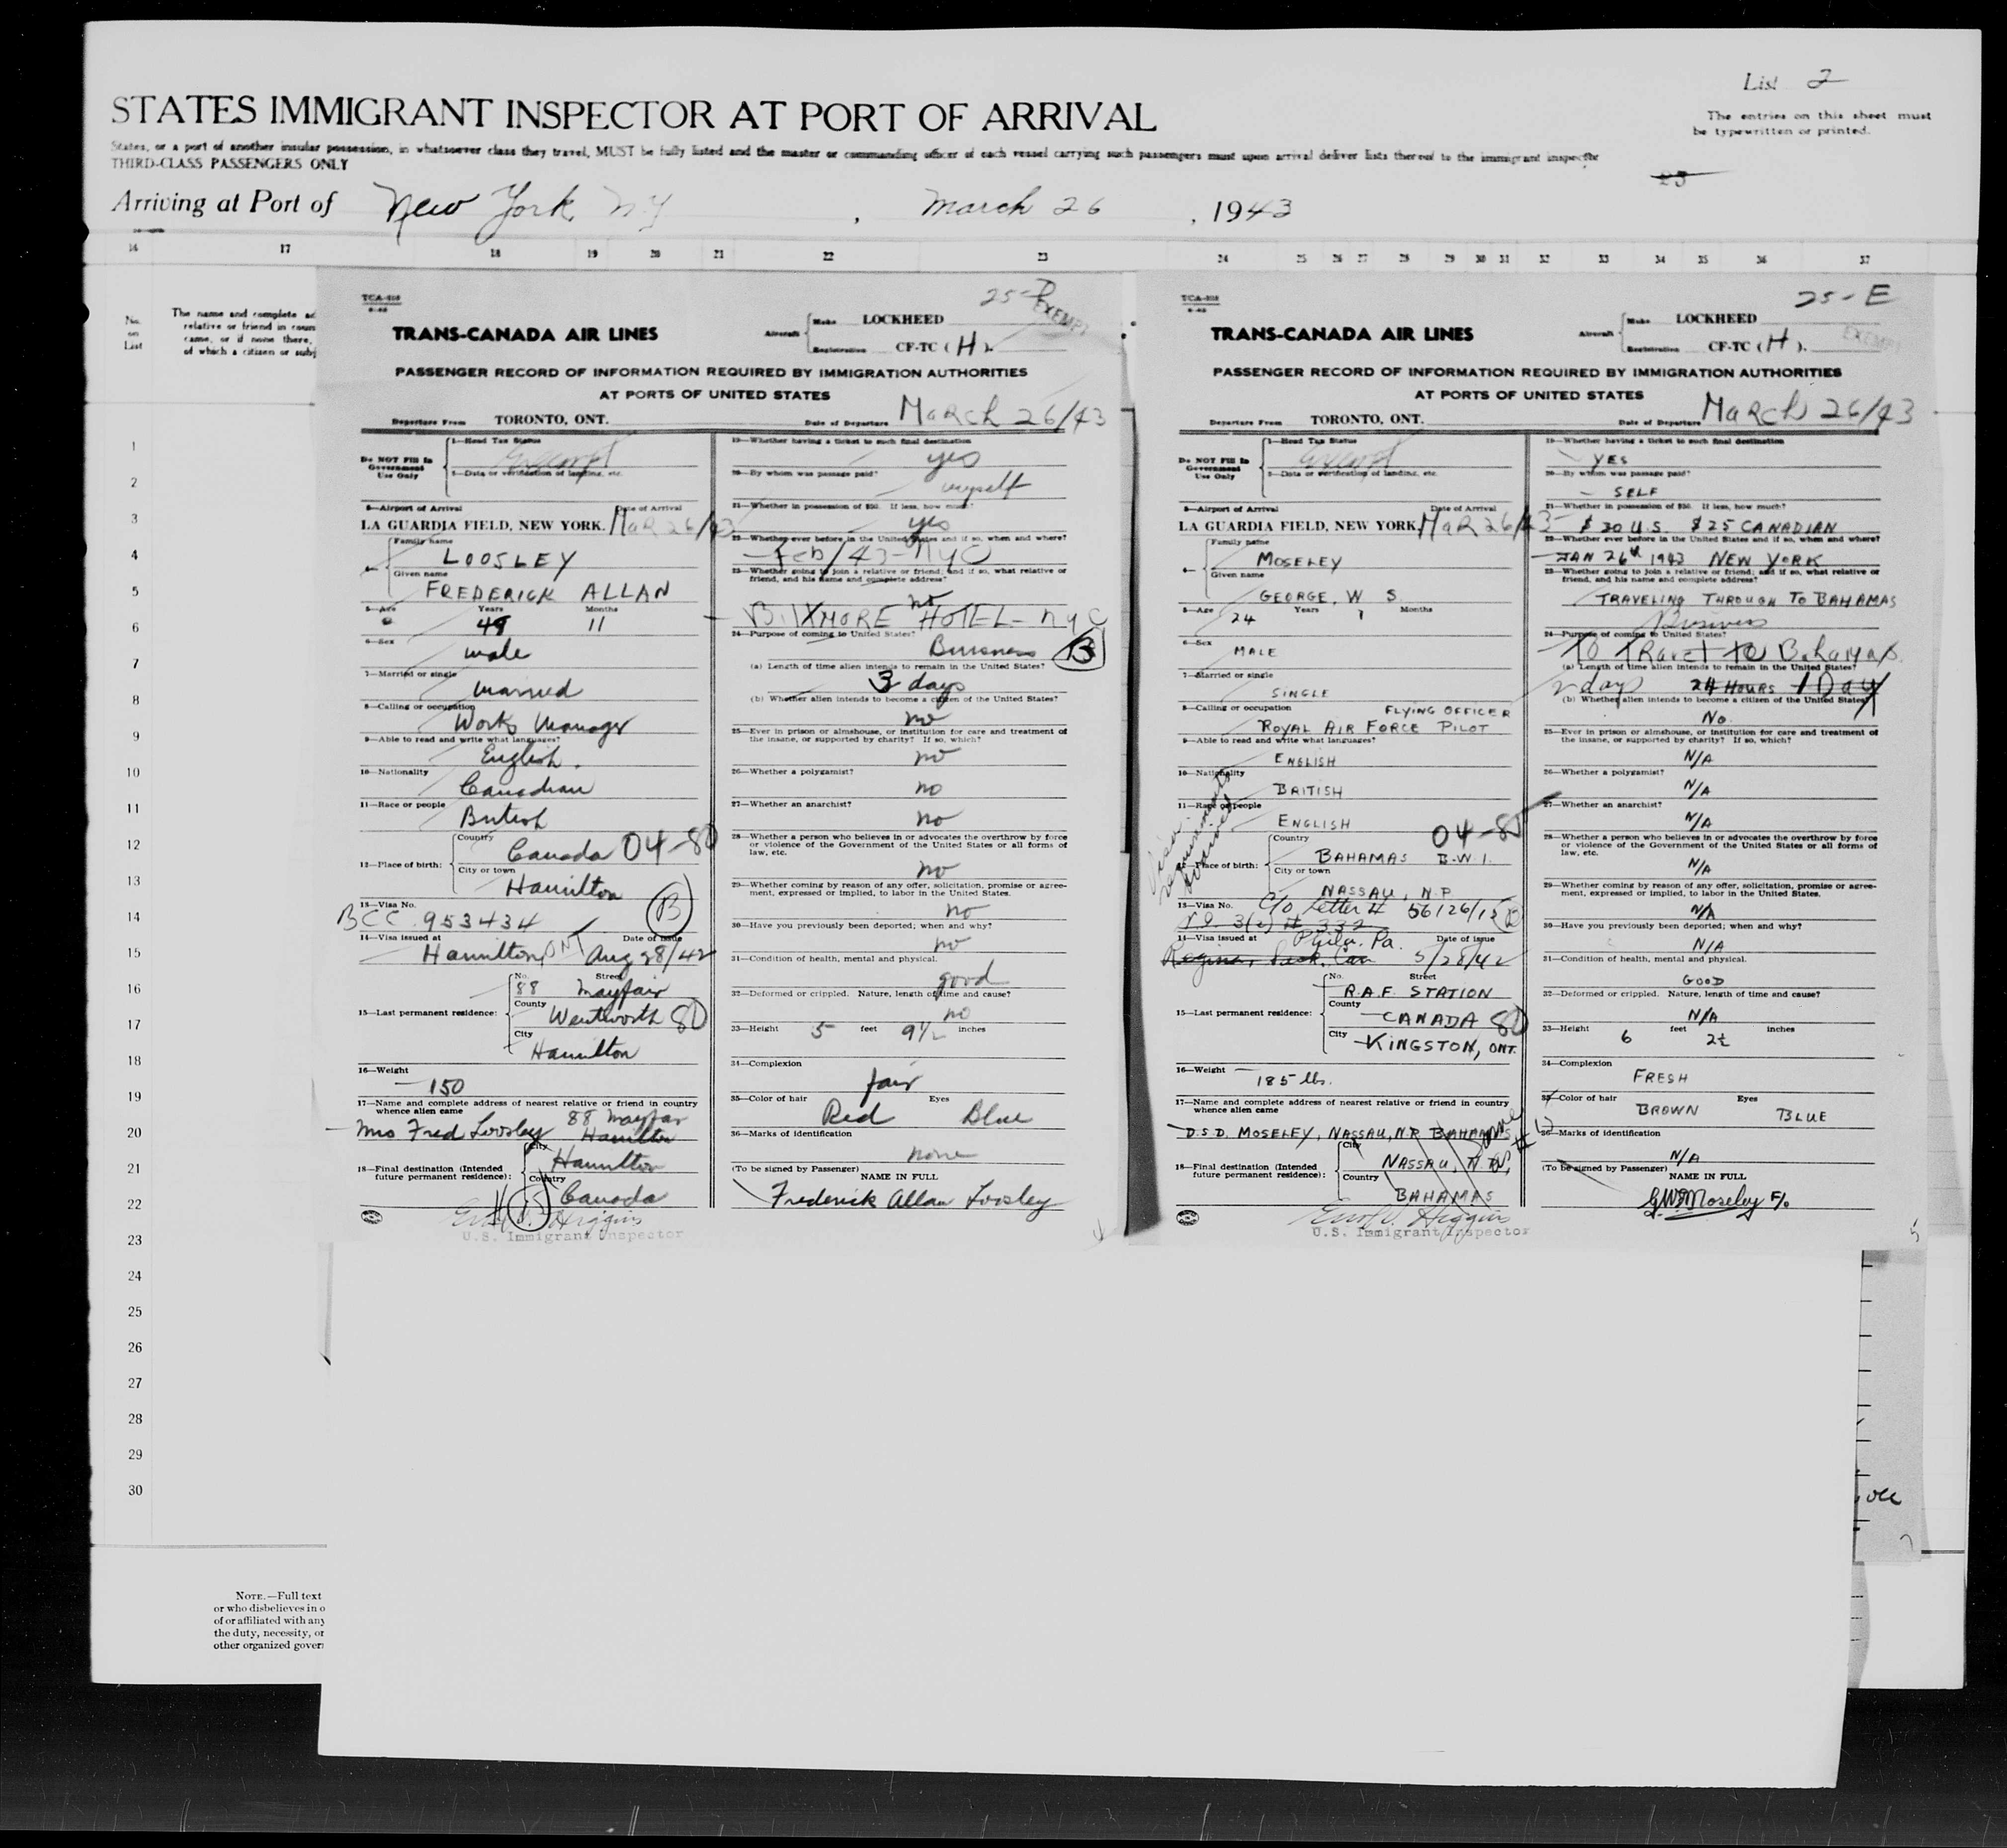 List 2
STATES IMMIGRANT INSPECTOR AT PORT OF ARRIVAL
The entries on this sheet must
be typewritten or printed.
States, or a port of another insular possession, in whatsoever class they travel, MUST be fully listed and the master or commanding officer of each vessel carrying such passengers must upon arrival deliver lists thereof to the immigrant inspector
THIRD-CLASS PASSENGERS ONLY
Arriving at Port of New York, N.Y , March 26 , 1943
16 17 18 19 20 21 22 23 24 25 26 27 28 29 30 31 32 33 34 35 36 37
No. on List
The name and complete ad
relative or friend in coun
came, or if none there,
of which a citizen or subj
1
2
3
4
5
6
7
8
9
10
11
12
13
14
15
16
17
18
19
20
21
22
23
24
25
26
27
28
29
30
NOTE.—Full text
or who disbelieves in o
of or affiliated with any
the duty, necessity, or
other organized govern
25-D
EXEMPT
TRANS-CANADA AIR LINES
Aircraft Make LOCKHEED
Registration CF-TC (H).
PASSENGER RECORD OF INFORMATION REQUIRED BY IMMIGRATION AUTHORITIES
AT PORTS OF UNITED STATES
Departure From TORONTO, ONT. Date of Departure March 26/43
Do NOT Fill In
Government
Use Only
1—Head Tax Status
Exempt
2—Data or verification of landing, etc.
3—Airport of Arrival Date of Arrival
LA GUARDIA FIELD, NEW YORK. Mar 26/43
4— Family name
LOOSLEY
Given name
FREDERICK ALLAN
5—Age Years Months
49 11
6—Sex
male
7—Married or single
married
8—Calling or occupation
Works Manager
9—Able to read and write what languages?
English.
10—Nationality
Canadian
11—Race or people
British
12—Place of birth: Country
Canada 04-80
City or town
Hamilton
13—Visa No.
BCC 953434 (B)
14—Visa issued at Date of issue
Hamilton, ONT Aug 28/42
15—Last permanent residence: No. Street
88 Mayfair
County
Wentworth 80
City
Hamilton
16—Weight
150
17—Name and complete address of nearest relative or friend in country
whence alien came 88 Mayfair
Mrs Fred Loosley Hamilton
18—Final destination (Intended
future permanent residence): City
Hamilton
Country
Canada
U.S. Immigrant Inspector
19—Whether having a ticket to such final destination
yes
20—By whom was passage paid?
myself
21—Whether in possession of $50. If less, how much?
yes
22—Whether ever before in the United States and if so, when and where?
Feb/43-NYC
23—Whether going to join a relative or friend; and if so, what relative or
friend, and his name and complete address?
no
BILTMORE HOTEL - NYC
24—Purpose of coming to United States?
Business (B)
(a) Length of time alien intends to remain in the United States?
3 days
(b) Whether alien intends to become a citizen of the United States?
no
25—Ever in prison or almshouse, or institution for care and treatment of
the insane, or supported by charity? If so, which?
no
26—Whether a polygamist?
no
27—Whether an anarchist?
no
28—Whether a person who believes in or advocates the overthrow by force
or violence of the Government of the United States or all forms of
law, etc.
no
29—Whether coming by reason of any offer, solicitation, promise or agree-
ment, expressed or implied, to labor in the United States.
no
30—Have you previously been deported; when and why?
no
31—Condition of health, mental and physical.
good
32—Deformed or crippled. Nature, length of time and cause?
no
33—Height 5 feet 9½ inches
34—Complexion
fair
35—Color of hair Eyes
Red Blue
36—Marks of identification
none
(To be signed by Passenger) NAME IN FULL
Frederick Allan Loosley
25-E
EXEMPT
TRANS-CANADA AIR LINES
Aircraft Make LOCKHEED
Registration CF-TC (H).
PASSENGER RECORD OF INFORMATION REQUIRED BY IMMIGRATION AUTHORITIES
AT PORTS OF UNITED STATES
Departure From TORONTO, ONT. Date of Departure March 26/43
Do NOT Fill In
Government
Use Only
1—Head Tax Status
Exempt
2—Data or verification of landing, etc.
3—Airport of Arrival Date of Arrival
LA GUARDIA FIELD, NEW YORK. Mar 26/43
4— Family name
MOSELEY
Given name
GEORGE, W S.
5—Age Years Months
24
6—Sex
MALE
7—Married or single
SINGLE
8—Calling or occupation FLYING OFFICER
ROYAL AIR FORCE PILOT
9—Able to read and write what languages?
ENGLISH
10—Nationality
BRITISH
11—Race or people
ENGLISH
12—Place of birth: Country
BAHAMAS B.W.I. 04-80
City or town
NASSAU, N.P.
13—Visa No. C/O letter # 56126/12
3(2) # 332
14—Visa issued at Phila. Pa. Date of issue
Regina, Sask. Can 5/28/42
15—Last permanent residence: No. Street
R.A.F. STATION
County
CANADA 80
City
KINGSTON, ONT.
16—Weight
185 lbs.
17—Name and complete address of nearest relative or friend in country
whence alien came
D.S.D. MOSELEY, NASSAU, N.P. BAHAMAS
18—Final destination (Intended
future permanent residence): City
NASSAU, N.P.
Country
BAHAMAS
U.S. Immigrant Inspector
19—Whether having a ticket to such final destination
YES
20—By whom was passage paid?
SELF
21—Whether in possession of $50. If less, how much?
$30 U.S. $25 CANADIAN
22—Whether ever before in the United States and if so, when and where?
JAN 26th 1943 NEW YORK
23—Whether going to join a relative or friend; and if so, what relative or
friend, and his name and complete address?
TRAVELING THROUGH TO BAHAMAS
Business
24—Purpose of coming to United States?
To Travel to Bahamas
(a) Length of time alien intends to remain in the United States?
2 days 24 HOURS 1 Day
(b) Whether alien intends to become a citizen of the United States?
No.
25—Ever in prison or almshouse, or institution for care and treatment of
the insane, or supported by charity? If so, which?
N/A
26—Whether a polygamist?
N/A
27—Whether an anarchist?
N/A
28—Whether a person who believes in or advocates the overthrow by force
or violence of the Government of the United States or all forms of
law, etc.
N/A
29—Whether coming by reason of any offer, solicitation, promise or agree-
ment, expressed or implied, to labor in the United States.
N/A
30—Have you previously been deported; when and why?
N/A
31—Condition of health, mental and physical.
GOOD
32—Deformed or crippled. Nature, length of time and cause?
N/A
33—Height 6 feet 2½ inches
34—Complexion
FRESH
35—Color of hair Eyes
BROWN BLUE
36—Marks of identification
N/A
(To be signed by Passenger) NAME IN FULL
G.W.S. Moseley F/O